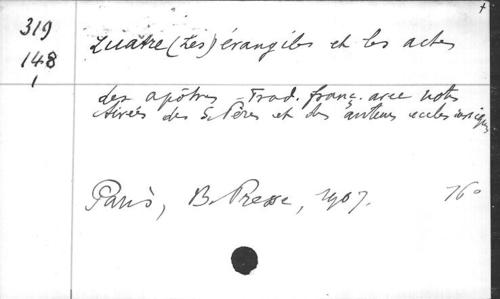 319
148
1
Quatre (Les) évangiles et les actes
des apôtres - Trad. franç. avec notes
tirées des S. Pères et des auteurs ecclésiastiques
Paris, B. Presse, 1907. 16°